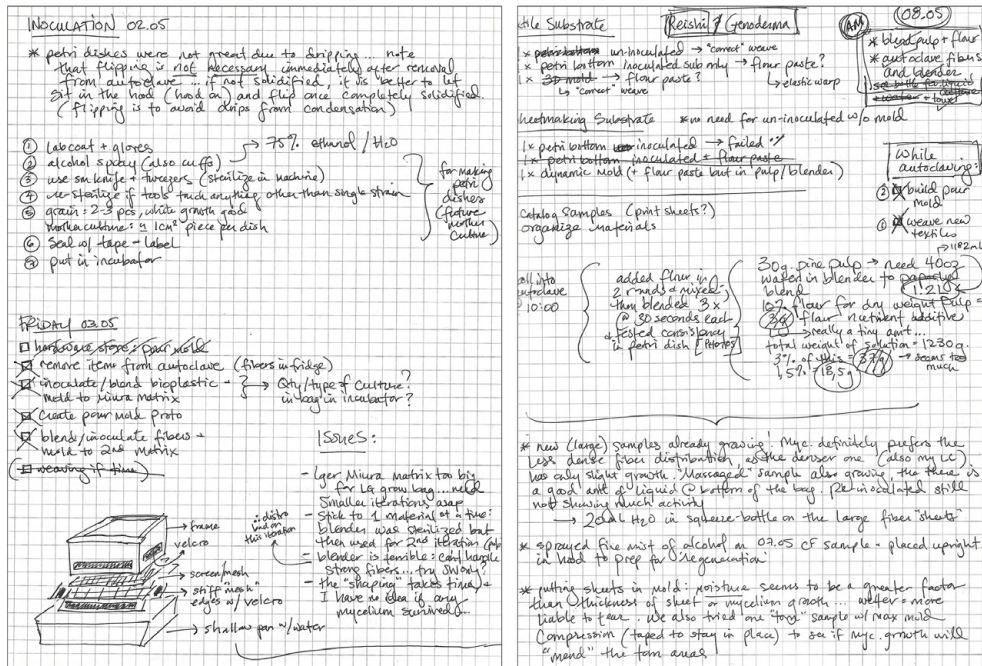 INOCULATION 02.05
* petri dishes were not great due to dripping... note
that flipping is not necessary immediately after removal
from autoclave... if not solidified, it is better to let
sit in the hood (hood on) and flip once completely solidified.
(flipping is to avoid drips from condensation)
① labcoat + gloves
② alcohol spray (also cuffs) → 75% ethanol / H2O
③ use sm knife + tweezers (sterilize in machine)
④ re-sterilize if tools touch anything other than single strain
⑤ grain: 2-3 pcs, white growth good
mother culture: ≈ 1cm² piece per dish
⑥ seal w/ tape - label
⑦ put in incubator
for making
petri
dishes
(future
mother
culture)
FRIDAY 03.05
hardware store: pour mold
remove item from autoclave (fibers in fridge)
inoculate/blend bioplastic → Qty/type of culture?
mold to Miura matrix in bag in incubator?
Create pour mold Proto
blend/inoculate fibers →
mold to 2nd matrix
(weaving if time)
frame
velcro
screen/mesh
stiff "mesh"
edges w/ velcro
shallow pan w/ water
ISSUES:
- Lger Miura matrix too big
for LG grow bag... need
smaller iterations asap
- Stick to 1 material at a time:
blender was sterilized but
then used for 2nd iteration
∴ distro
bad on
this iteration
- blender is terrible: can't handle
strong fibers... try
- the "shaping" takes time, +
I have no idea if any
mycelium survived...
tile Substrate Reishi / Genoderma
1x petri bottom un-inoculated → "correct" weave
1x petri bottom inoculated sub only → flour paste?
↳ elastic warp
1x 3D mold → flour paste?
↳ "correct" weave
AM
08.05
* blend pulp + flour
* autoclave fibers
and blender
heetmaking Substrate *no need for un-inoculated w/o mold
1x petri bottom inoculated → failed
1x petri bottom inoculated + flour paste
1x dynamic Mold (+ flour paste but in pulp/blender)
While
autoclaving:
② build pour
mold
① weave new
textiles
Catalog Samples (print sheets?)
organize materials
into
autoclave
@ 10:00
added flour in
2 rounds & mixed,
then blended 3x
@ 30 seconds each
tested consistency
in petri dish [PHOTOS]
1182mL
30g. pine pulp → need 40oz
water in blender to
blend 1:210g
10% flour for dry weight pulp =
3g flour nutrient additive
↳ really a tiny amt...
total weight of solution = 1230g.
3% of this = 37g → seems too
much
1,5% = 18,5g
* new (large) samples already growing! Myc. definitely prefers the
less dense fiber distribution, as the denser one (also my LC)
has only slight growth. "Massaged" sample also growing, tho there is
a good amt of liquid @ bottom of the bag. Re-inoculated still
not showing much activity
→ 20mL H2O in squeeze-bottle on the large fiber "sheets"
* sprayed fine mist of alcohol on 07.05 CF sample - placed upright
in hood to prep for "regeneration"
* putting sheets in mold: moisture seems to be a greater factor
than thickness of sheet or mycelium growth... wetter = more
liable to tear. We also tried one "torn" sample w/ max mold
Compression (taped to stay in place) to see if myc. growth will
"mend" the torn areas